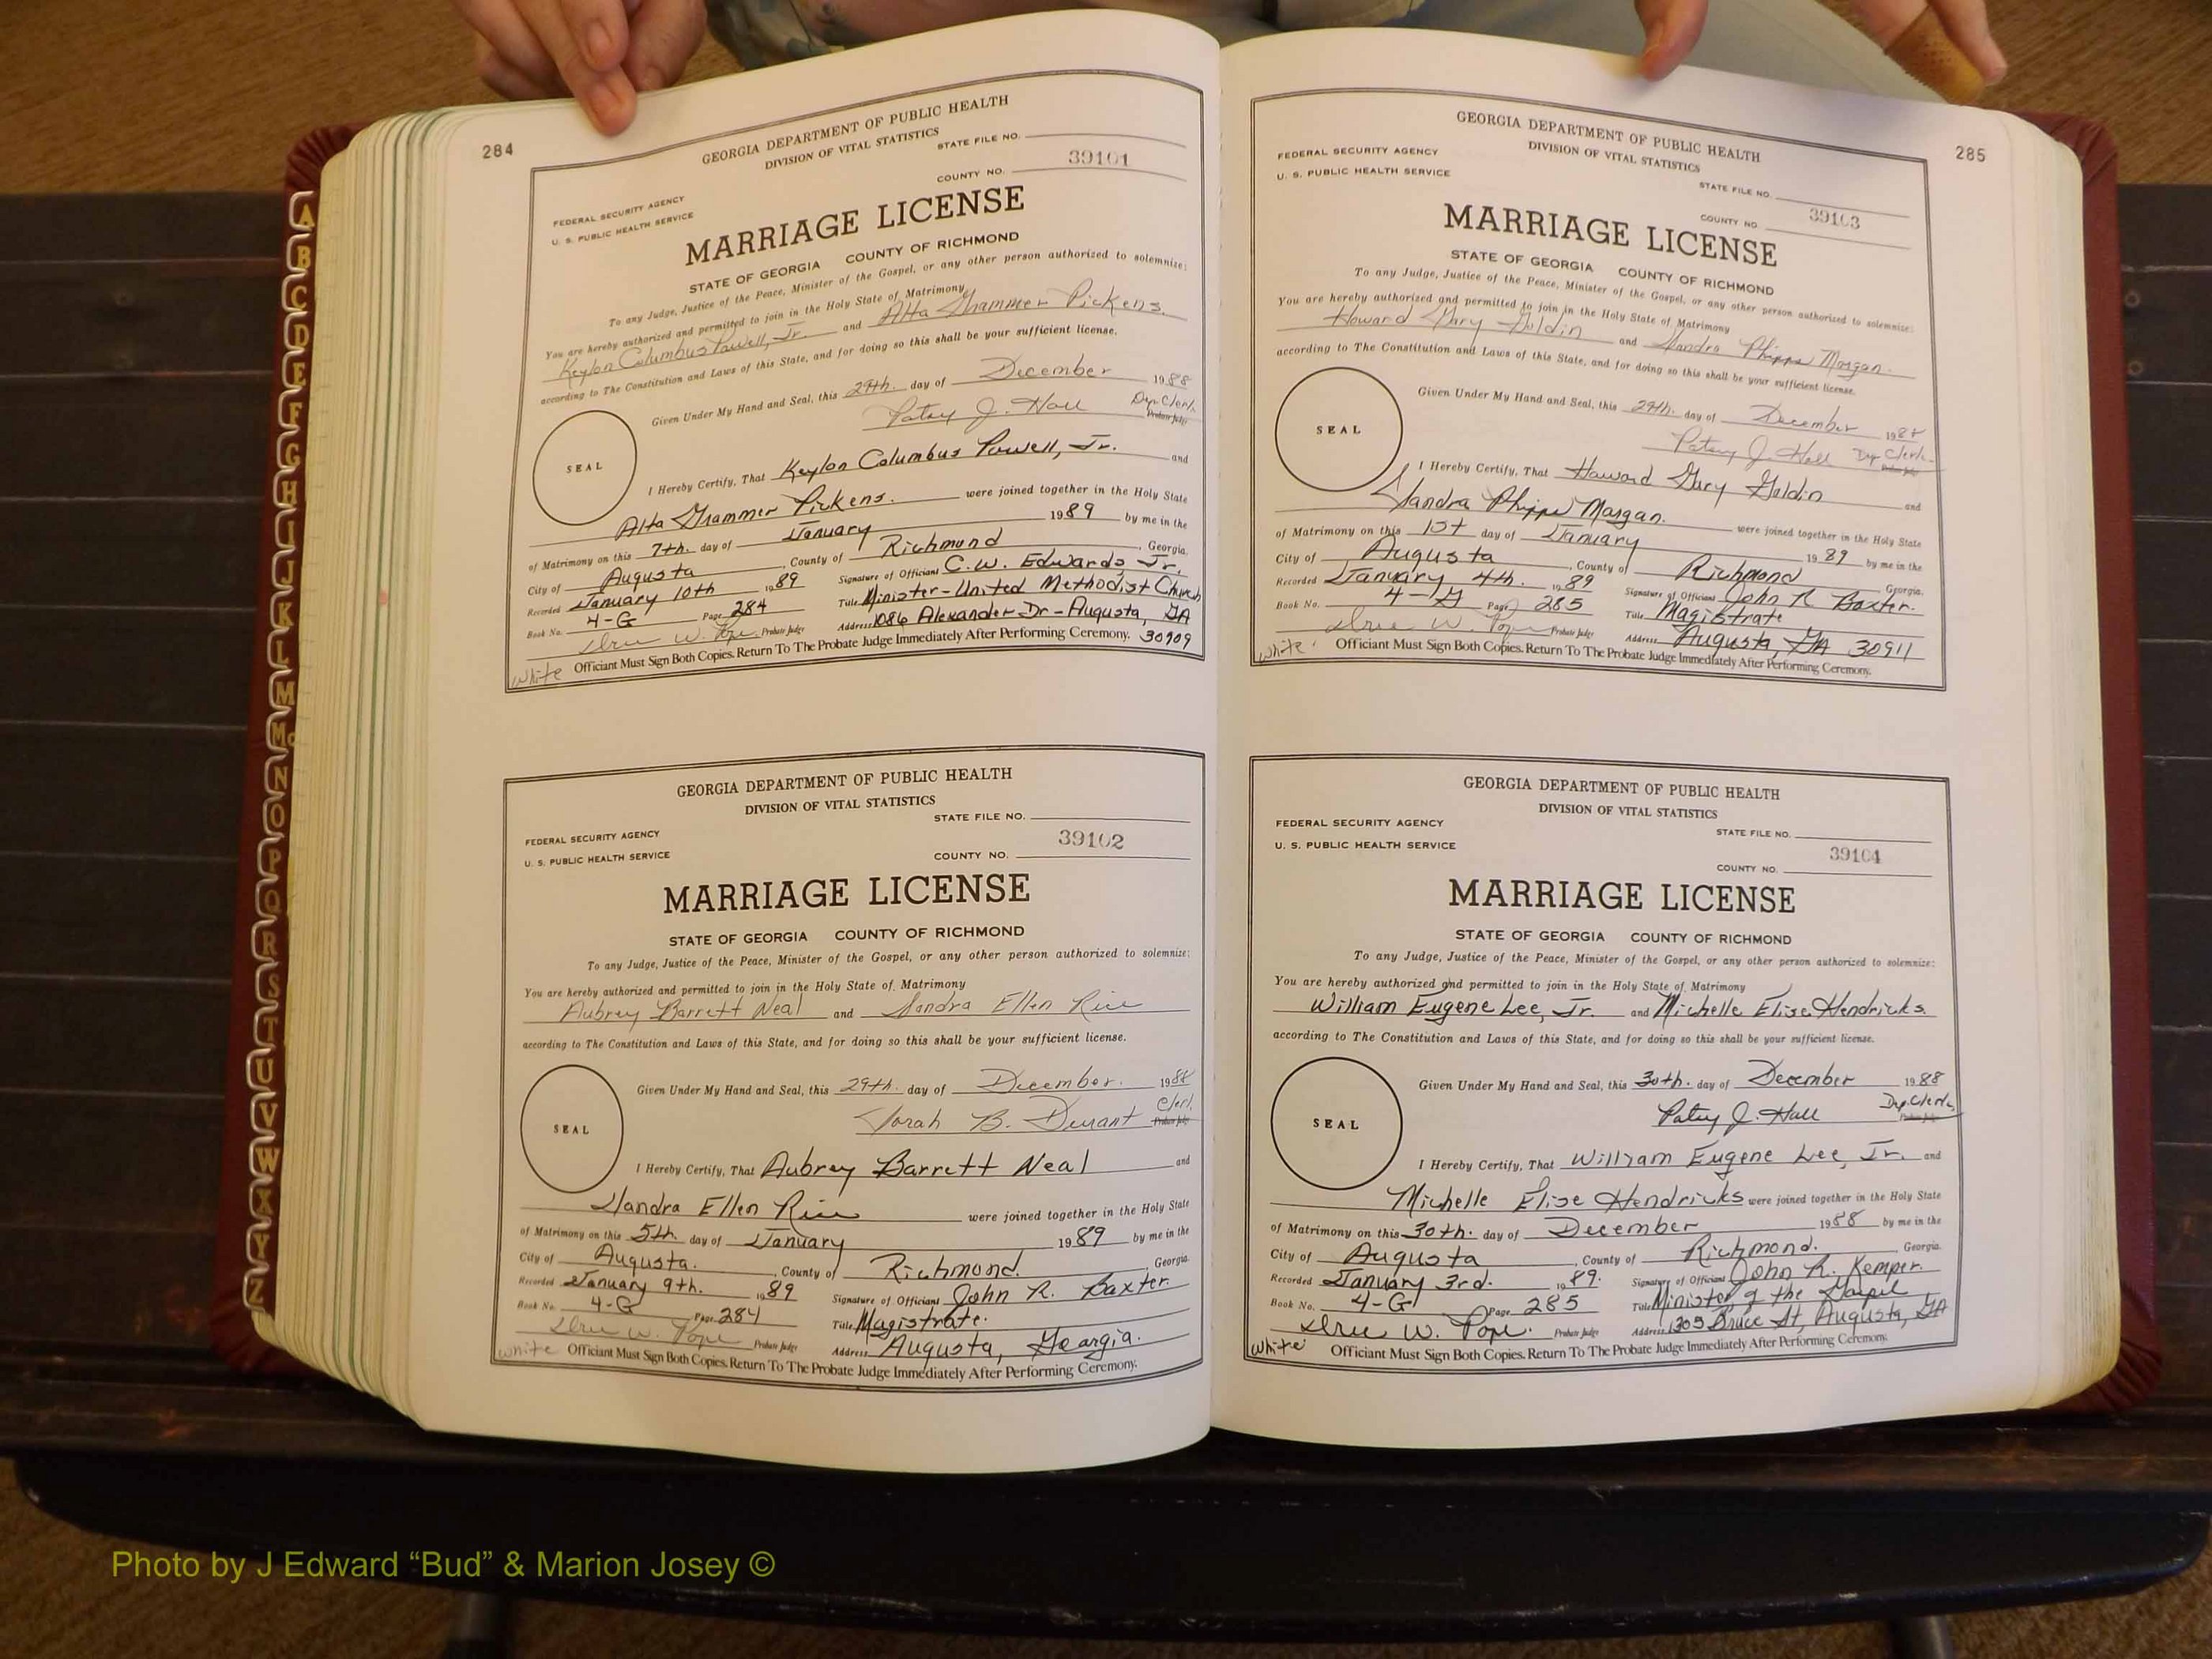 284
GEORGIA DEPARTMENT OF PUBLIC HEALTH
DIVISION OF VITAL STATISTICS
STATE FILE NO.
39101
COUNTY NO.
FEDERAL SECURITY AGENCY
U. S. PUBLIC HEALTH SERVICE
MARRIAGE LICENSE
STATE OF GEORGIA COUNTY OF RICHMOND
To any Judge, Justice of the Peace, Minister of the Gospel, or any other person authorized to solemnize:
You are hereby authorized and permitted to join in the Holy State of Matrimony
Keylon Columbus Powell, Jr. and Alta Grammer Pickens.
according to The Constitution and Laws of this State, and for doing so this shall be your sufficient license.
Given Under My Hand and Seal, this 29th. day of December 1988
Patsy J. Hall Dep. Clerk.
Probate Judge
SEAL
I Hereby Certify, That Keylon Columbus Powell, Jr. and
Alta Grammer Pickens. were joined together in the Holy State
of Matrimony on this 7th. day of January 1989 by me in the
City of Augusta, County of Richmond, Georgia.
Recorded January 10th 1989 Signature of Officiant C.W. Edwards Jr.
Book No. 4-G Page 284 Title Minister-United Methodist Church
Probate Judge Address 1086 Alexander Dr-Augusta, GA
white Officiant Must Sign Both Copies. Return To The Probate Judge Immediately After Performing Ceremony. 30909
GEORGIA DEPARTMENT OF PUBLIC HEALTH
DIVISION OF VITAL STATISTICS
STATE FILE NO.
FEDERAL SECURITY AGENCY
39102
U. S. PUBLIC HEALTH SERVICE
COUNTY NO.
MARRIAGE LICENSE
STATE OF GEORGIA COUNTY OF RICHMOND
To any Judge, Justice of the Peace, Minister of the Gospel, or any other person authorized to solemnize:
You are hereby authorized and permitted to join in the Holy State of Matrimony
Aubrey Barrett Neal and Sandra Ellen Rice
according to The Constitution and Laws of this State, and for doing so this shall be your sufficient license.
Given Under My Hand and Seal, this 29th. day of December. 1988
Sarah B. Durant Clerk.
Probate Judge
SEAL
I Hereby Certify, That Aubrey Barrett Neal and
Sandra Ellen Rice were joined together in the Holy State
of Matrimony on this 5th. day of January 1989 by me in the
City of Augusta., County of Richmond. Georgia.
Recorded January 9th. 1989 Signature of Officiant John R. Baxter.
Book No. 4-G Page 284 Title Magistrate.
Probate Judge Address Augusta, Georgia.
white Officiant Must Sign Both Copies. Return To The Probate Judge Immediately After Performing Ceremony.
285
GEORGIA DEPARTMENT OF PUBLIC HEALTH
DIVISION OF VITAL STATISTICS
FEDERAL SECURITY AGENCY
U. S. PUBLIC HEALTH SERVICE
STATE FILE NO.
39103
COUNTY NO.
MARRIAGE LICENSE
STATE OF GEORGIA COUNTY OF RICHMOND
To any Judge, Justice of the Peace, Minister of the Gospel, or any other person authorized to solemnize:
You are hereby authorized and permitted to join in the Holy State of Matrimony
Howard Gary Goldin and Sandra Phipps Morgan.
according to The Constitution and Laws of this State, and for doing so this shall be your sufficient license.
Given Under My Hand and Seal, this 29th. day of December 1988
Patsy J. Hall Dep. Clerk.
Probate Judge
SEAL
I Hereby Certify, That Howard Gary Goldin and
Sandra Phipps Morgan. were joined together in the Holy State
of Matrimony on this 1st day of January 1989 by me in the
City of Augusta, County of Richmond Georgia.
Recorded January 4th. 1989 Signature of Officiant John R Baxter.
Book No. 4-G Page 285 Title Magistrate
Probate Judge Address Augusta, GA 30911
white. Officiant Must Sign Both Copies. Return To The Probate Judge Immediately After Performing Ceremony.
GEORGIA DEPARTMENT OF PUBLIC HEALTH
DIVISION OF VITAL STATISTICS
FEDERAL SECURITY AGENCY
STATE FILE NO.
U. S. PUBLIC HEALTH SERVICE
39104
COUNTY NO.
MARRIAGE LICENSE
STATE OF GEORGIA COUNTY OF RICHMOND
To any Judge, Justice of the Peace, Minister of the Gospel, or any other person authorized to solemnize:
You are hereby authorized and permitted to join in the Holy State of Matrimony
William Eugene Lee, Jr. and Michelle Elise Hendricks.
according to The Constitution and Laws of this State, and for doing so this shall be your sufficient license.
Given Under My Hand and Seal, this 30th. day of December 1988
Patsy J. Hall Dep. Clerk.
Probate Judge
SEAL
I Hereby Certify, That William Eugene Lee, Jr. and
Michelle Elise Hendricks were joined together in the Holy State
of Matrimony on this 30th. day of December 1988 by me in the
City of Augusta, County of Richmond. Georgia.
Recorded January 3rd. 1989. Signature of Officiant John R. Kemper.
Book No. 4-G Page 285 Title Minister of the Gospel
W. Pope. Probate Judge Address 1305 Bruce St, Augusta, GA
white Officiant Must Sign Both Copies. Return To The Probate Judge Immediately After Performing Ceremony.
A
B
C
D
E
F
G
H
I
J
K
L
M
Mc
N
O
P
Q
R
S
T
U
V
W
X
Y
Z
Photo by J Edward “Bud” & Marion Josey ©